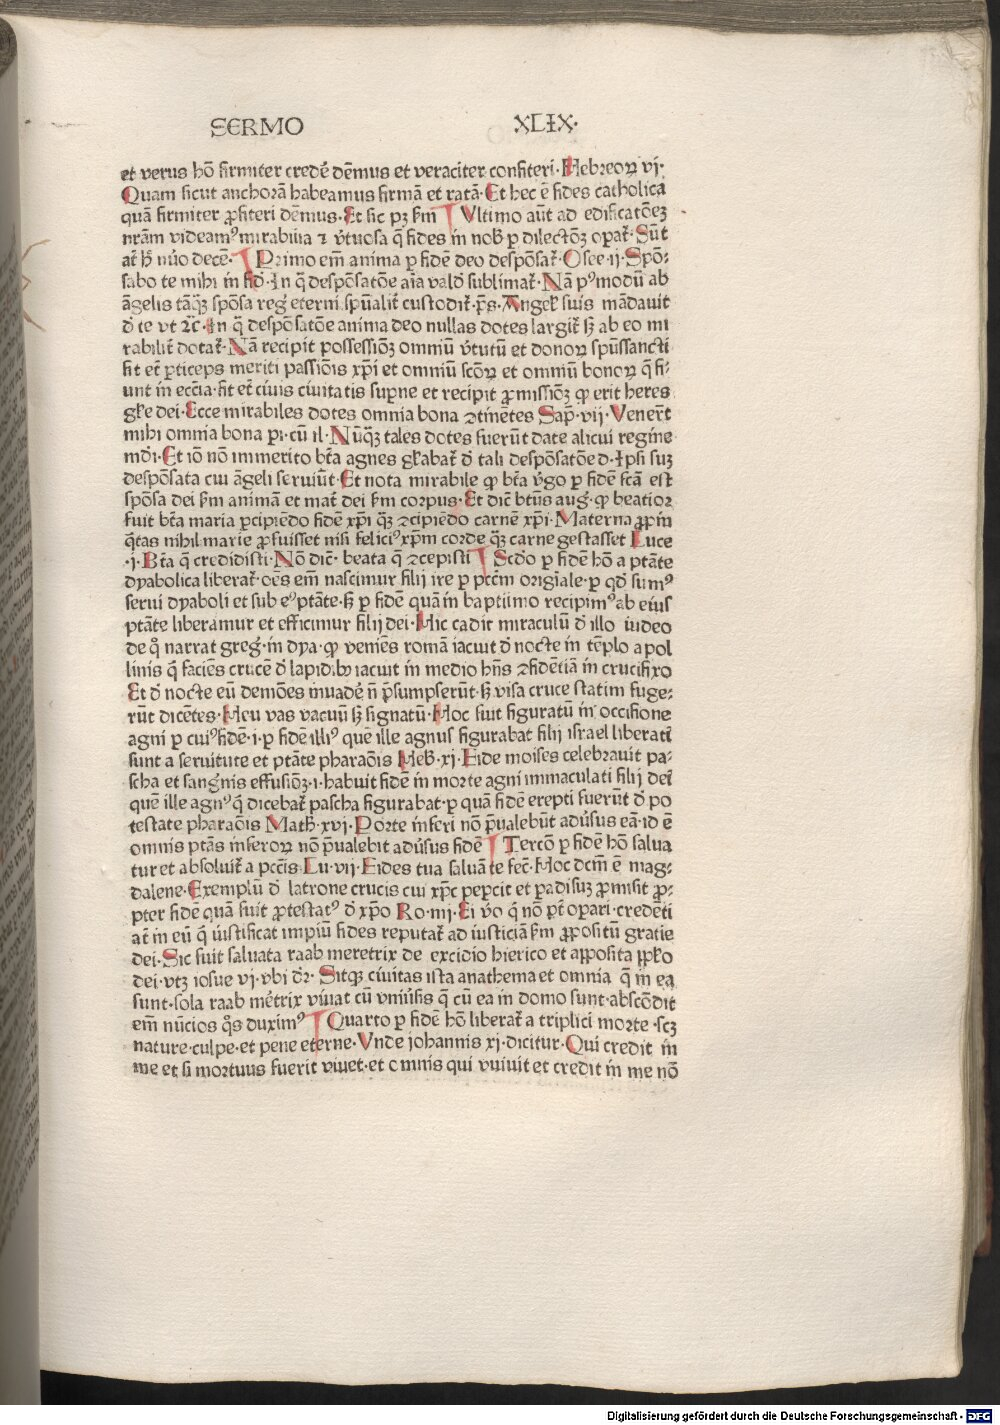 SERMO XLIX·
et verus hō firmiter credē dēmus et veraciter confiteri· Hebreoꝝ vj·
Quam sicut anchorā habeamus firmā et ratā· Et hec ē fides catholica
quā firmiter ꝓfiteri demus· Et sic pꝫ ẜm Vltimo aūt ad edificatōeꝫ
nrām videamꝰ mirabilia ⁊ v̄tuosa q̄ fides in nob̄ p dilectōꝫ opat̄· Sūt
at̄ h̄ nūo decē· Primo em̄ anima p fidē deo despōsat̄· Osee ij· Spō-
sabo te mihi in fid̄· In q̄ despōsatōe aīa vald̄ sublimat̄· Nā pꝰ modū ab
āgelis tāqꝫ spōsa reḡ eterni spūalit̄ custodit̄· p̄s· Angel̄ suis mādavit
d̄ te vt ⁊c̄· In q̄ despōsatōe anima deo nullas dotes largit̄ sꝫ ab eo mi
rabilit̄ dotat̄· Nā recipit possessiōꝫ omniū v̄tutū et donoꝝ spūssancti
fit et̄ p̄ticeps meriti passiōis xp̄i et omniū scōꝝ et omniū bonoꝝ q̄ fi-
unt in ecc̄ia· fit et̄ civis civitatis supne et recipit ꝓmissiōꝫ ꝙ erit heres
gl̄e dei· Ecce mirabiles dotes omnia bona ↄtinētes Sap̄· vij· Venert̄
mihi omnia bona pi· cū il· Nūqꝫ tales dotes fuerūt date alicui regine
md̄i· Et iō nō immerito bt̄a agnes gl̄abat̄ d̄ tali despōsatōe d· Ipsi suꝫ
despōsata cui āgeli serviūt· Et nota mirabile ꝙ bt̄a v̄go p fidē fcā est
spōsa dei ẜm animā et mat̄ dei ẜm corpus· Et dic̄ bt̄us auḡ· ꝙ beatior
fuit bt̄a maria pcipiēdo fidē xp̄i qꝫ ↄcipiēdo carnē xp̄i· Materna ꝓpin
q̄tas nihil marie ꝓfuisset nisi feliciꝰ xp̄m corde qꝫ carne gestasset Luce
·j· Bt̄a q̄ credidisti· Nō dic̄· beata q̄ ↄcepisti Scd̄o p fidē hō a ptāte
dyabolica liberat̄· oēs em̄ nascimur filij ire p pcc̄m origīale· p qd̄ sumꝰ
servi dyaboli et sub eꝰ ptāte· sꝫ p fidē quā in baptismo recipimꝰ ab eius
ptāte liberamur et efficimur filij dei· Hic cadit miraculū d̄ illo iudeo
de qͦ narrat greḡ· in dya· ꝙ veniēs romā iacuit d̄ nocte in tēplo apol
linis q̄ faciēs crucē d̄ lapidibꝫ iacuit in medio hn̄s ↄfidētiā in crucifixo
Et d̄ nocte eū demōes invadē n̄ p̄sumpserūt· sꝫ visa cruce statim fuge-
rūt dicētes· Heu vas vacuū sꝫ signatū· Hoc fuit figuratū in occisione
agni p cuiꝰ fidē· i· p fidē illiꝰ quē ille agnus figurabat filij israel liberati
sunt a servitute et ptāte pharaōis Heb̄· xj· Fide moises celebravit pa-
scha et sangnis effusiōꝫ· i· habuit fidē in morte agni immaculati filij dei
quē ille agnꝰ q̄ dicebat̄ pascha figurabat· p quā fidē erepti fuerūt d̄ po
testate pharaōis Math̄· xvj· Porte inferi nō p̄valebūt adv̄sus eā· id ē
omnis ptās inferoꝝ nō p̄valebit adv̄sus fidē Tercō p fidē hō salva
tur et absolvit̄ a pcc̄is· Lu· vij· Fides tua salvā te fec̄· Hoc dcm̄ ē mag-
dalene· Exemplū d̄ latrone crucis cui xp̄c pepcit et padisuꝫ ꝓmisit ꝓ-
pter fidē quā fuit ꝓtestatꝰ d̄ xp̄o Ro· iiij· Ei v̄o q̄ nō pt̄ opari· credēti
at̄ in eū q̄ iustificat impiū fides reputat̄ ad iusticiā ẜm ꝓpositū gratie
dei· Sic fuit salvata raab meretrix de excidio hierico et apposita pp̄lo
dei· vtꝫ iosue vj· vbi d̄r· Sitqꝫ civitas ista anathema et omnia q̄ in ea
sunt· sola raab mētrix vivat cū vniv̄sis q̄ cū ea in domo sunt· abscōdit
em̄ nūcios qͦs duximꝰ Quarto p fidē hō liberat̄ a triplici morte· scꝫ
nature· culpe· et pene eterne· Vnde johannis xj· dicitur· Qui credit in
me et si mortuus fuerit vivet· et omnis qui vivit et credit in me nō
Digitalisierung gefördert durch die Deutsche Forschungsgemeinschaft - DFG